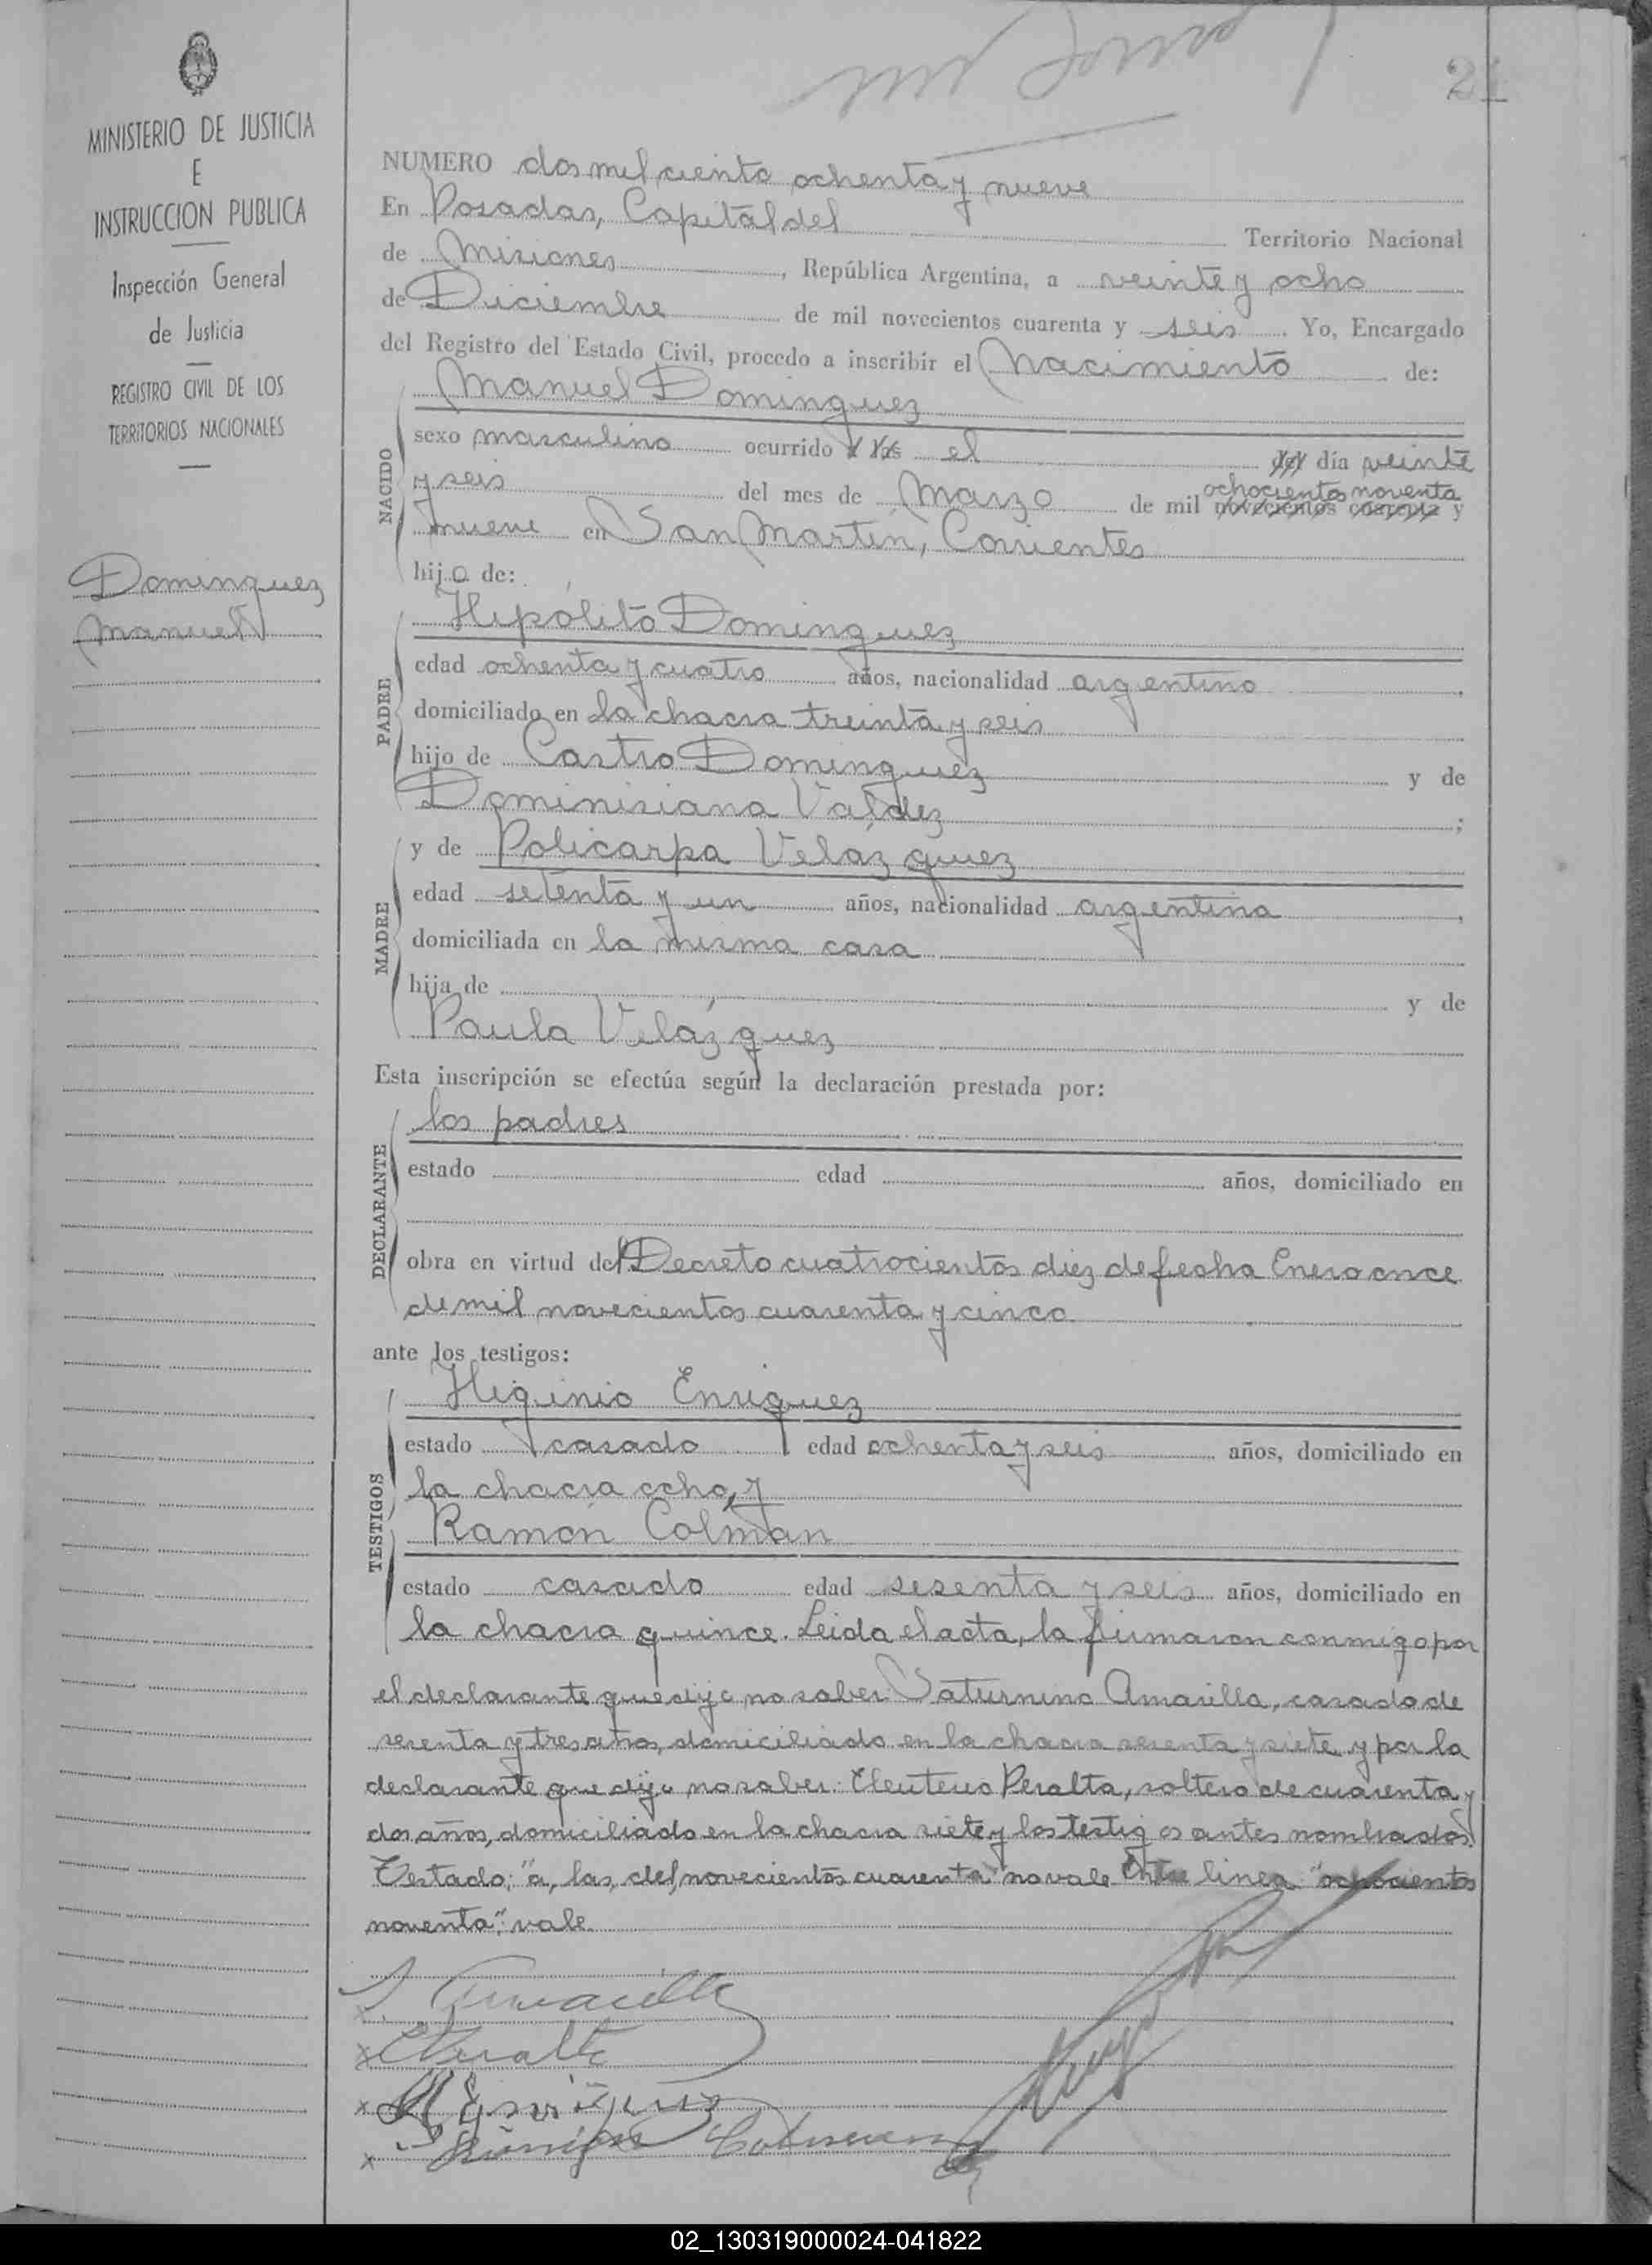 21
MINISTERIO DE JUSTICIA
E
INSTRUCCION PUBLICA
Inspección General
de Justicia
REGISTRO CIVIL DE LOS
TERRITORIOS NACIONALES
Dominguez
Manuel
NUMERO dos mil ciento ochenta y nueve
En Posadas, Capital del Territorio Nacional
de Misiones, República Argentina, a veinte y ocho
de Diciembre de mil novecientos cuarenta y seis. Yo, Encargado
del Registro del Estado Civil, procedo a inscribir el Nacimiento de:
NACIDO
Manuel Dominguez
sexo masculino ocurrido a las el del día veinte
y seis del mes de Marzo de mil novecientos cuarenta y
ochocientos noventa
nueve en San Martín, Corrientes
hijo de:
PADRE
Hipólito Dominguez
edad ochenta y cuatro años, nacionalidad argentino
domiciliado en la chacra treinta y seis
hijo de Castro Dominguez y de
Dominisiana Valdez;
MADRE
y de Policarpa Velazquez
edad setenta y un años, nacionalidad argentina,
domiciliada en la misma casa
hija de y de
Paula Velázquez
Esta inscripción se efectúa según la declaración prestada por:
DECLARANTE
los padres
estado edad años, domiciliado en
obra en virtud del Decreto cuatrocientos diez de fecha Enero once
de mil novecientos cuarenta y cinco
ante los testigos:
TESTIGOS
Higinio Enriquez
estado casado edad ochenta y seis años, domiciliado en
la chacra ocho, y
Ramón Colman
estado casado edad sesenta y seis años, domiciliado en
la chacra quince. Leida el acta, la firmaron conmigo por
el declarante que dijo no saber: Saturnino Amarilla, casado de
sesenta y tres años, domiciliado en la chacra sesenta y siete y por la
declarante que dijo no saber: Eleuterio Peralta, soltero de cuarenta y
dos años, domiciliado en la chacra siete y los testigos antes nombrados.
Testado: "a, las, del, novecientos cuarenta" no vale Entre linea "ochocientos
noventa": vale.
S. Amarilla
x EPeralta
x
x Colman
02_130319000024-041822